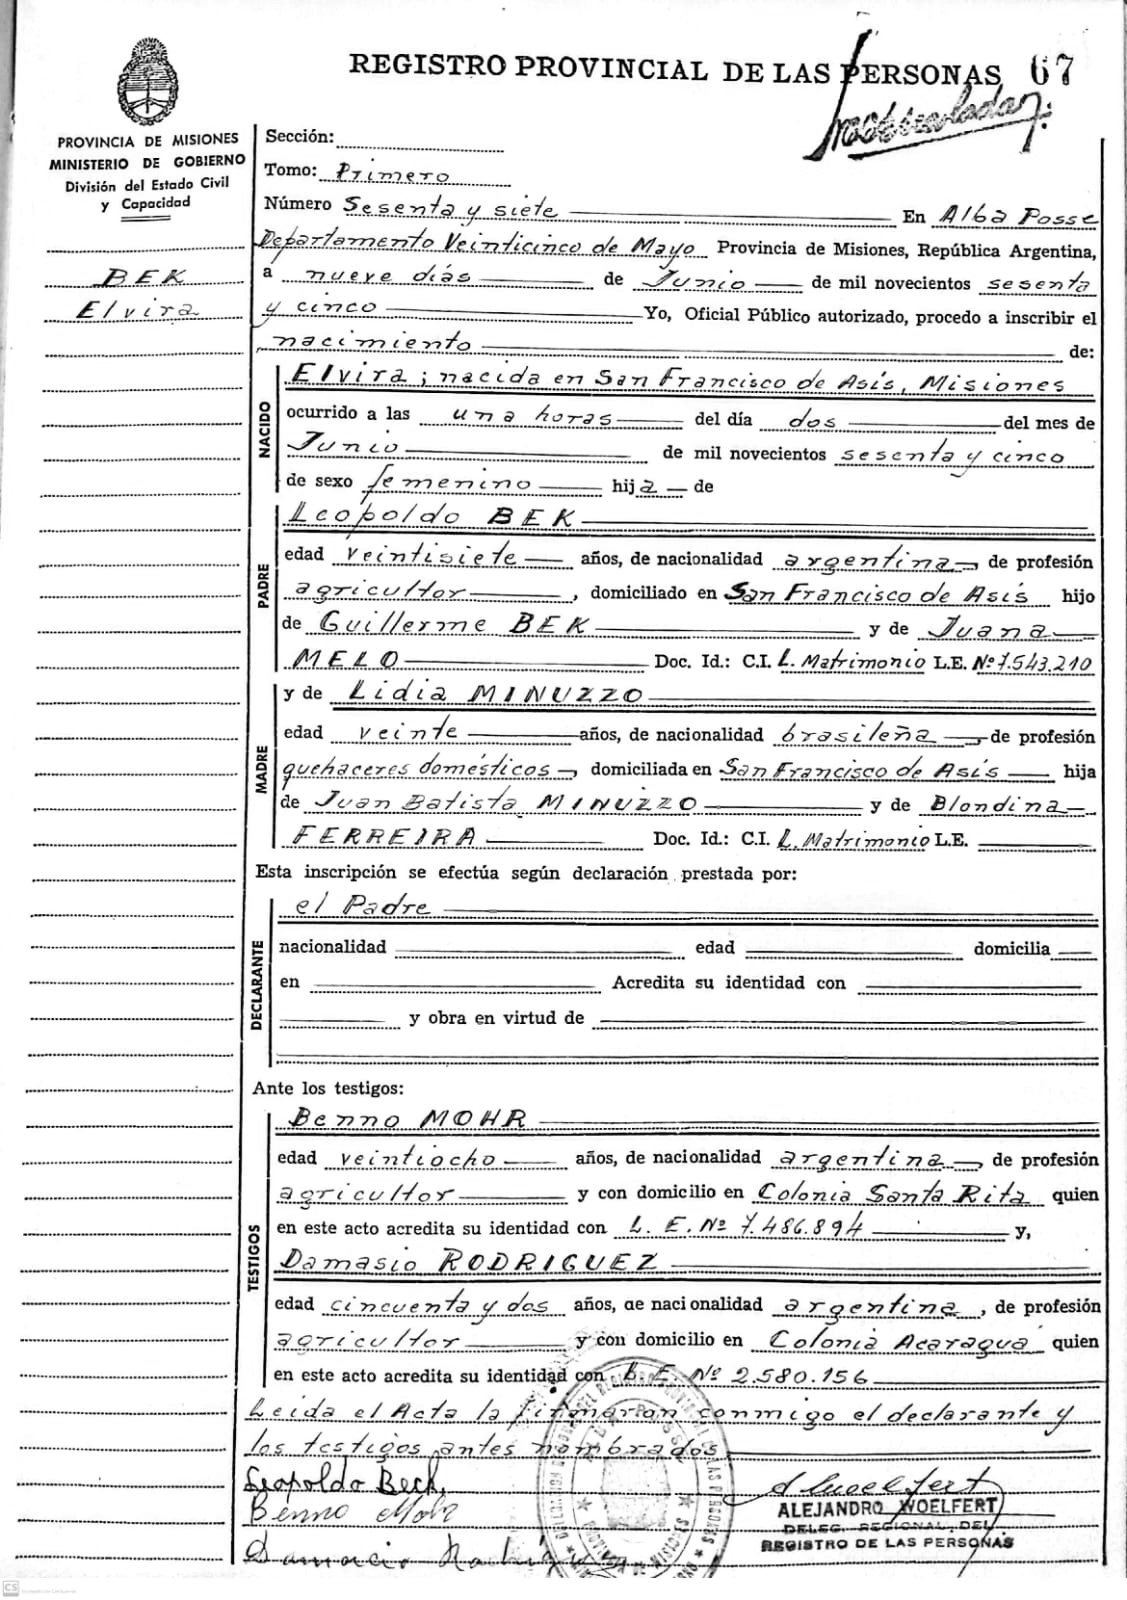 REGISTRO PROVINCIAL DE LAS PERSONAS 67
PROVINCIA DE MISIONES
MINISTERIO DE GOBIERNO
División del Estado Civil
y Capacidad
BEK
Elvira
Sección:
Tomo: Primero
Número Sesenta y siete En Alba Posse
Departamento Veinticinco de Mayo Provincia de Misiones, República Argentina,
a nueve días de Junio de mil novecientos sesenta
y cinco Yo, Oficial Público autorizado, procedo a inscribir el
nacimiento de:
NACIDO
Elvira; nacida en San Francisco de Asís, Misiones
ocurrido a las una horas del día dos del mes de
Junio de mil novecientos sesenta y cinco
de sexo femenino hija de
PADRE
Leopoldo BEK
edad veintisiete años, de nacionalidad argentina de profesión
agricultor, domiciliado en San Francisco de Asís hijo
de Guillerme BEK y de Juana
MELO Doc. Id.: C.I. L. Matrimonio L.E. Nº 7.543.210
MADRE
y de Lidia MINUZZO
edad veinte años, de nacionalidad brasileña de profesión
quehaceres domésticos, domiciliada en San Francisco de Asís hija
de Juan Batista MINUZZO y de Blondina
FERREIRA Doc. Id.: C.I. L. Matrimonio L.E.
Esta inscripción se efectúa según declaración prestada por:
DECLARANTE
el Padre
nacionalidad edad domicilia
en Acredita su identidad con
y obra en virtud de
Ante los testigos:
TESTIGOS
Benno MOHR
edad veintiocho años, de nacionalidad argentina, de profesión
agricultor y con domicilio en Colonia Santa Rita quien
en este acto acredita su identidad con L. E. Nº 7.486.894 y,
Damasio RODRIGUEZ
edad cincuenta y dos años, de nacionalidad argentina, de profesión
agricultor y con domicilio en Colonia Acaragua quien
en este acto acredita su identidad con L. E. Nº 2.580.156
Leida el Acta la firmaron conmigo el declarante y
los testigos antes nombrados
Leopoldo Beck,
Benno Mohr
ALEJANDRO WOELFERT
DELEG. REGIONAL DEL
REGISTRO DE LAS PERSONAS
CS